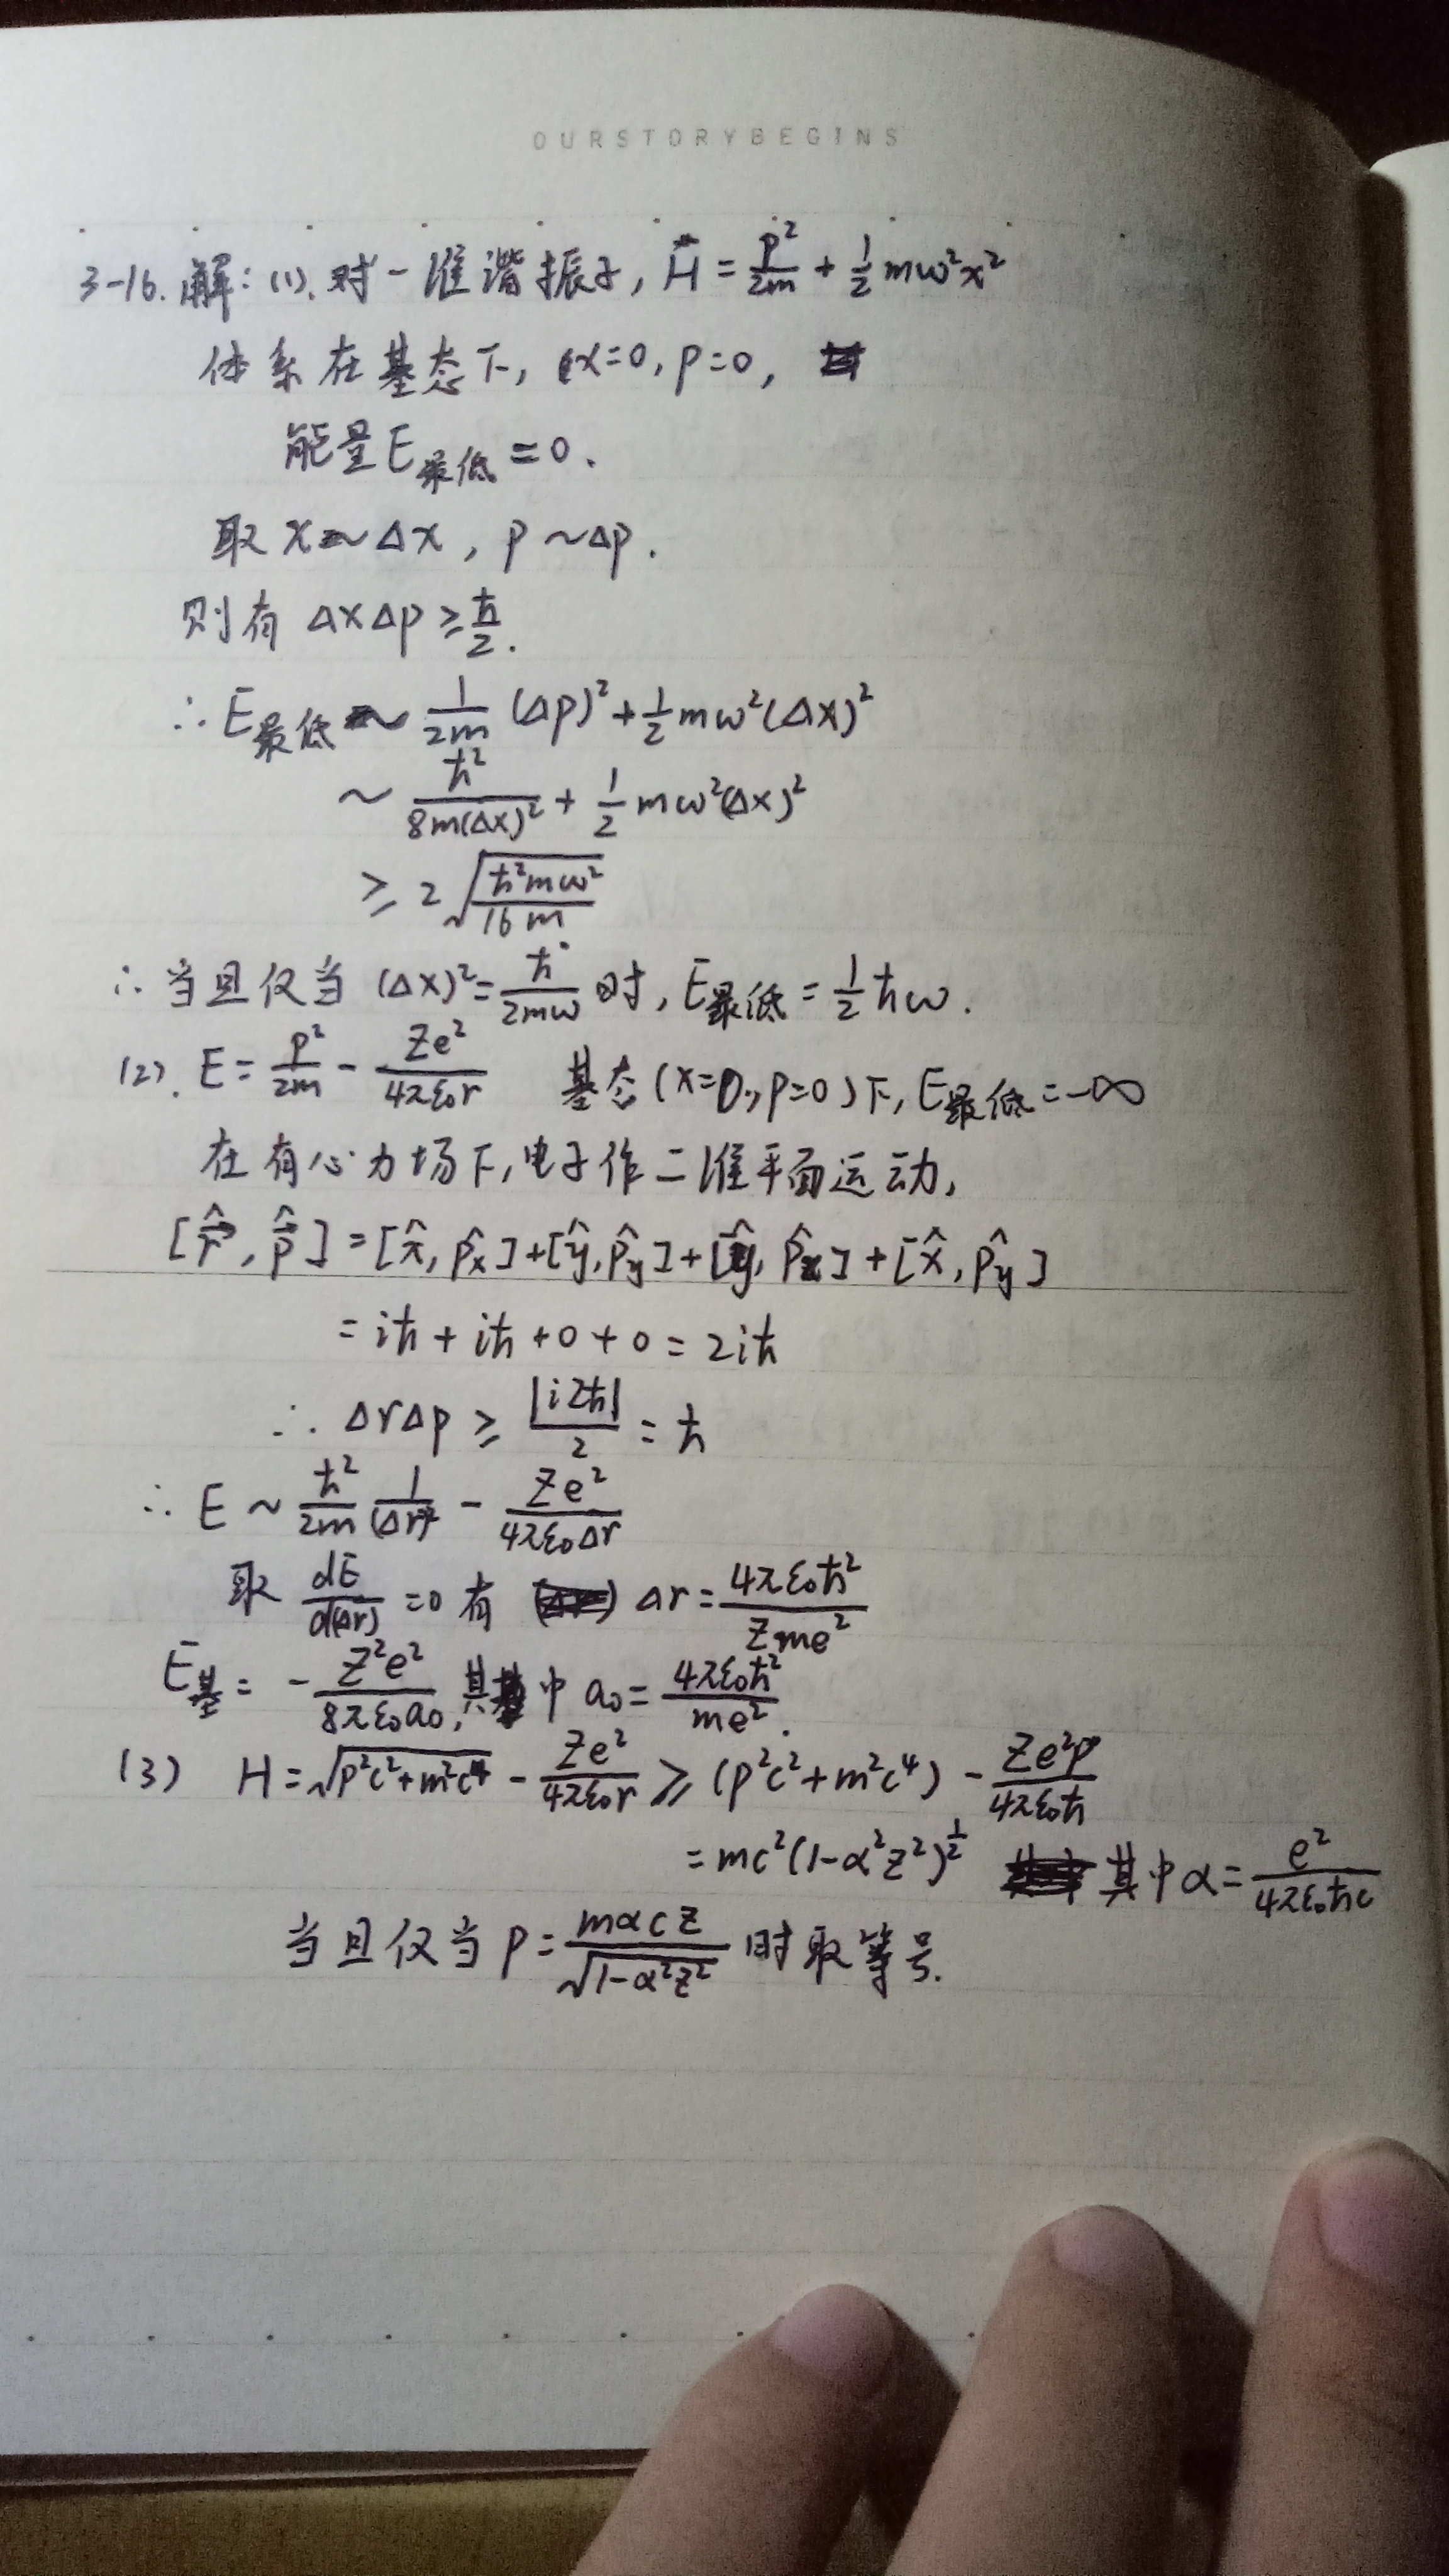 OURSTORYBEGINS
3-16. 解: (1). 对一维谐振子, Ĥ = p²/2m + ½mω²x²
体系在基态下, x=0, p=0,
能量E最低 = 0.
取 x ~ Δx, p ~ Δp.
则有 ΔxΔp ≥ ħ/2.
∴ E最低 ~ 1/2m (Δp)² + ½mω²(Δx)²
~ ħ²/8m(Δx)² + ½mω²(Δx)²
≥ 2√(ħ²mω²/16m)
∴ 当且仅当 (Δx)² = ħ/2mω 时, E最低 = ½ħω.
(2). E = p²/2m - Ze²/4πε₀r 基态(x=0, p=0)下, E最低 = -∞
在有心力场下, 电子作二维平面运动,
[r̂, p̂] = [x̂, p̂x] + [ŷ, p̂y] + [ŷ, p̂x] + [x̂, p̂y]
= iħ + iħ + 0 + 0 = 2iħ
∴ ΔrΔp ≥ |i2ħ|/2 = ħ
∴ E ~ ħ²/2m 1/(Δr)² - Ze²/4πε₀Δr
取 dE/d(Δr) = 0 有 Δr = 4πε₀ħ²/Zme²
E基 = - Z²e²/8πε₀a₀, 其中 a₀ = 4πε₀ħ²/me².
(3) H = √(p²c²+m²c⁴) - Ze²/4πε₀r ≥ (p²c²+m²c⁴) - Ze²p/4πε₀ħ
= mc²(1-α²z²)^½ 其中 α = e²/4πε₀ħc
当且仅当 p = mαcz/√(1-α²z²) 时取等号.